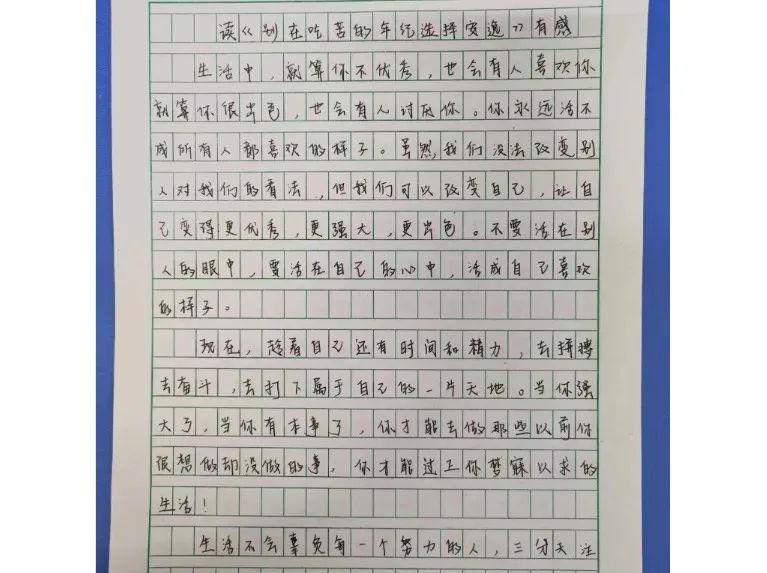 读《别在吃苦的年纪选择安逸》有感
生活中，就算你不优秀，也会有人喜欢你
就算你很出色，也会有人讨厌你。你永远活不
成所有人都喜欢的样子。虽然，我们没法改变别
人对我们的看法，但我们可以改变自己，让自
己变得更优秀，更强大，更出色。不要活在别
人的眼中，要活在自己的心中，活成自己喜欢
的样子。
现在，趁着自己还有时间和精力，去拼搏
去奋斗，去打下属于自己的一片天地。当你强
大了，当你有本事了，你才能去做那些以前你
很想做却没做的事，你才能过上你梦寐以求的
生活！
生活不会辜负每一个努力的人，三分天注